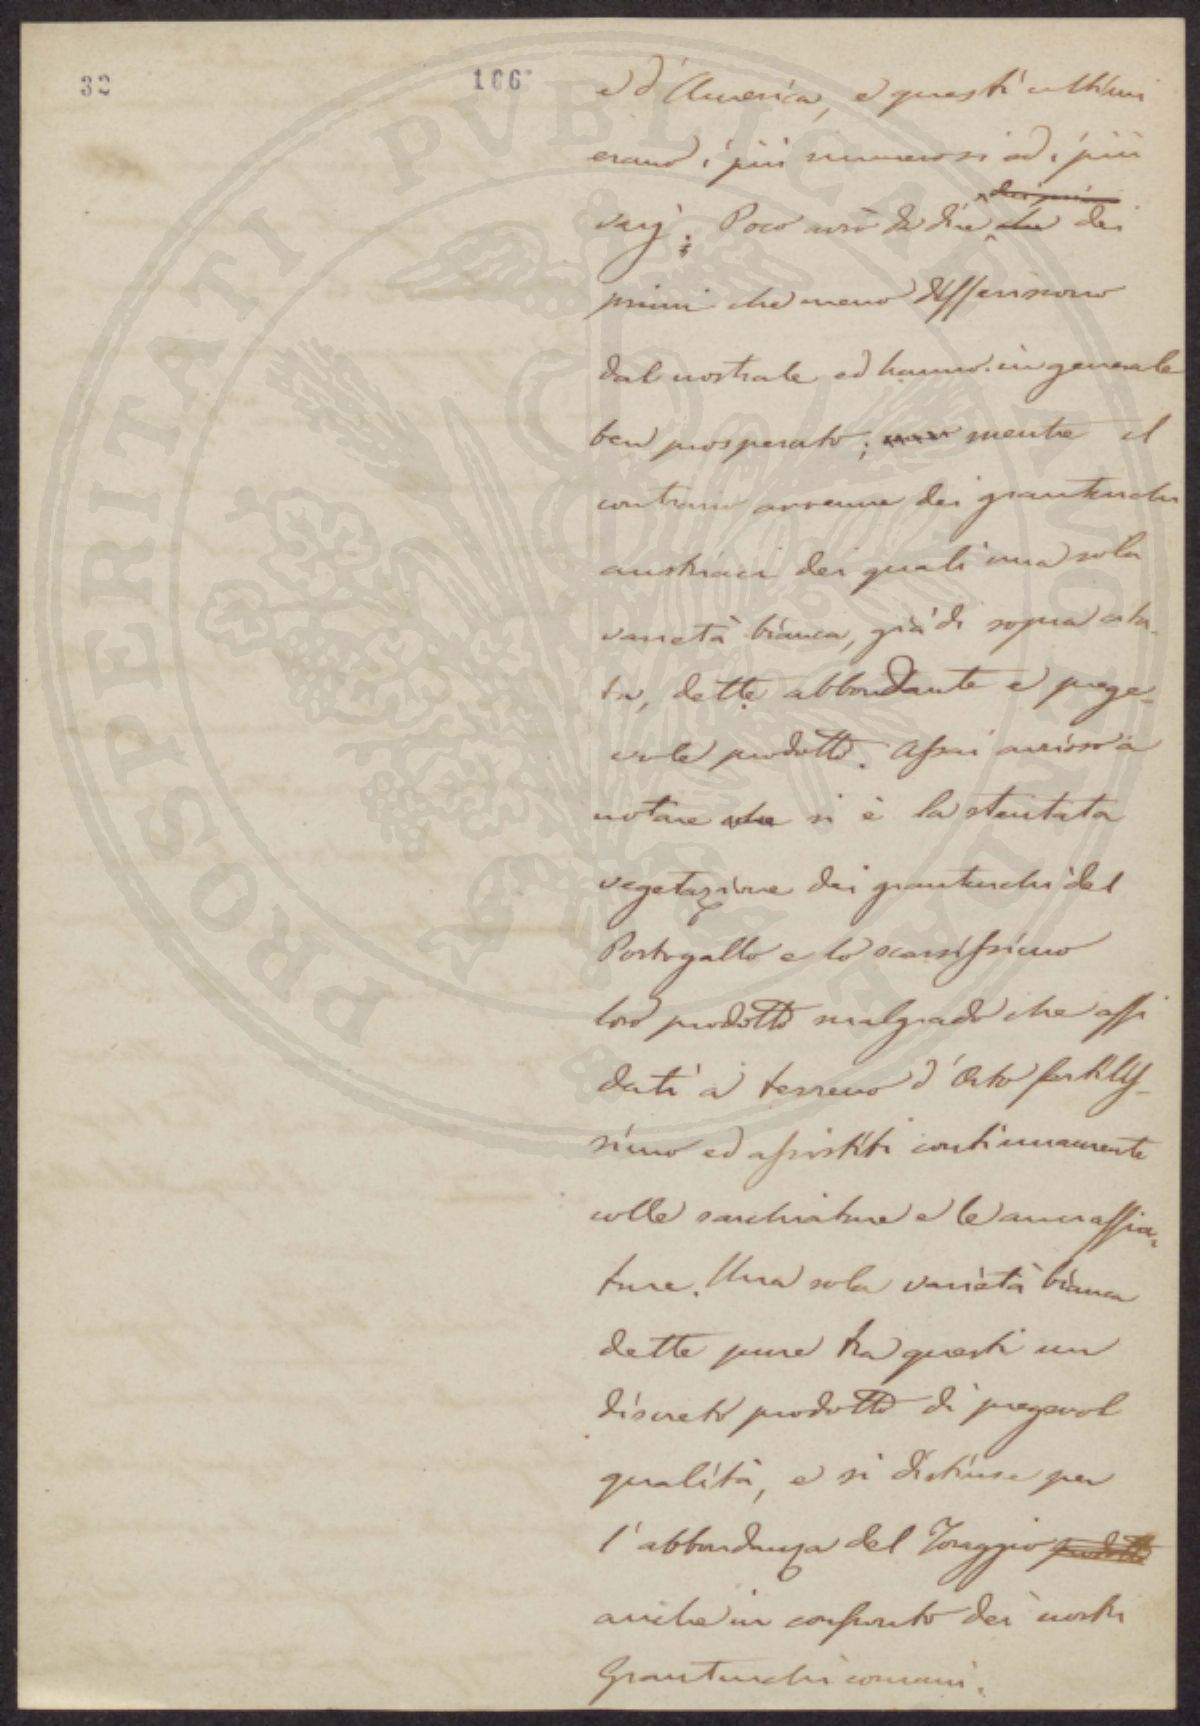 32
106
e d'America, e questi ultimi
erano i più numerosi ed i più
dei primi
varj. Poco avrò da dire che dei
primi che meno differiscono
dal nostrale ed hanno in generale
ben prosperato; mentre il
contrario avvenne dei granturchi
austriaci dei quali una sola
varietà bianca, già di sopra cita-
ta, dette abbondante e prege-
vole prodotto. Assai curioso a
notare che si è la stentata
vegetazione dei granturchi del
Portogallo e lo scarsissimo
loro prodotto malgrado che affi
dati a terreno d'Orto fertilis-
simo ed assistiti continuamente
colle sarchiature e le annaffia-
ture. Una sola varietà bianca
dette pure tra questi un
discreto prodotto di pregevol
qualità, e si distinse per
l'abbondanza del foraggio prodotto
anche in confronto dei nostri
Granturchi comuni.
PROSPERITATI PUBLICAE AUGENDAE